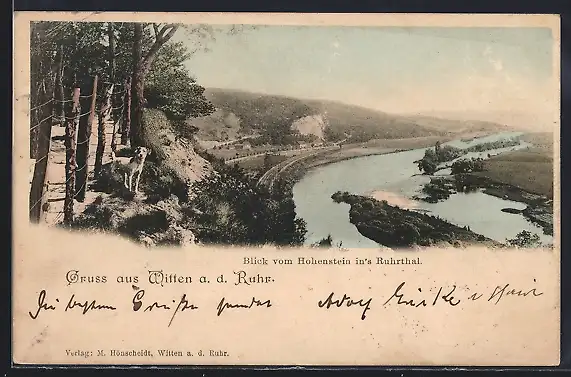 Blick vom Hohenstein in's Ruhrthal.
Gruss aus Witten a. d. Ruhr.
Die besten Grüße sendet Adolf
Verlag: M. Hönscheidt, Witten a. d. Ruhr.